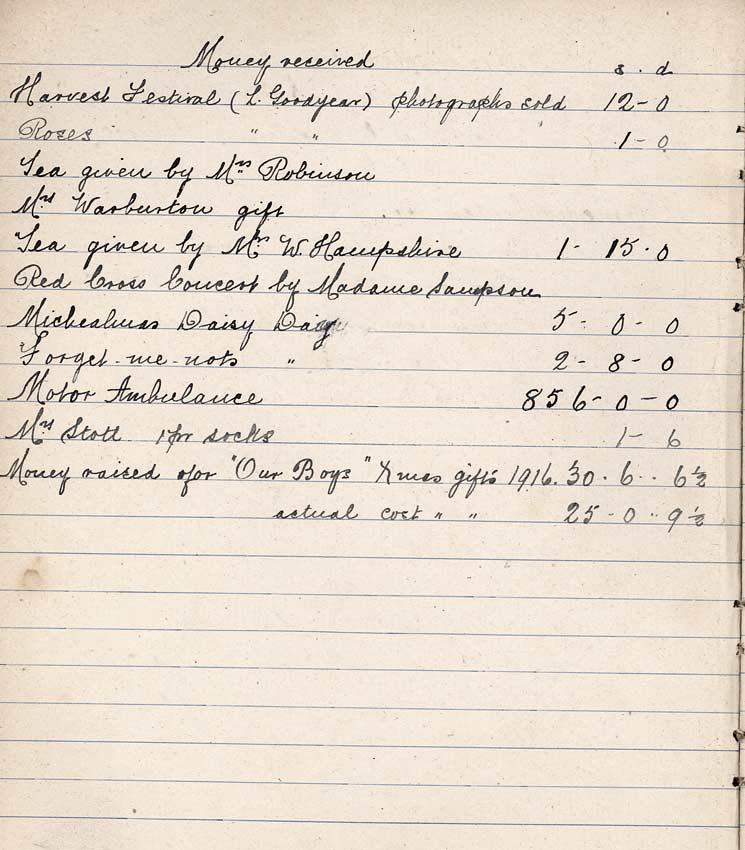 Money received s. d
Harvest Festival (L. Goodyear) photographs sold 12-0
Roses " " 1-0
Tea given by Mrs Robinson
Mrs Warburton gift
Tea given by Mrs W. Hampshire 1-15-0
Red Cross Concert by Madame Sampson
Michealmas Daisy Day 5-0-0
Forget-me-nots " 2-8-0
Motor Ambulance 856-0-0
Mrs Stott 1 pr socks 1-6
Money raised for "Our Boys" Xmas gifts 1916. 30.6..6½
actual cost " " 25-0..9½